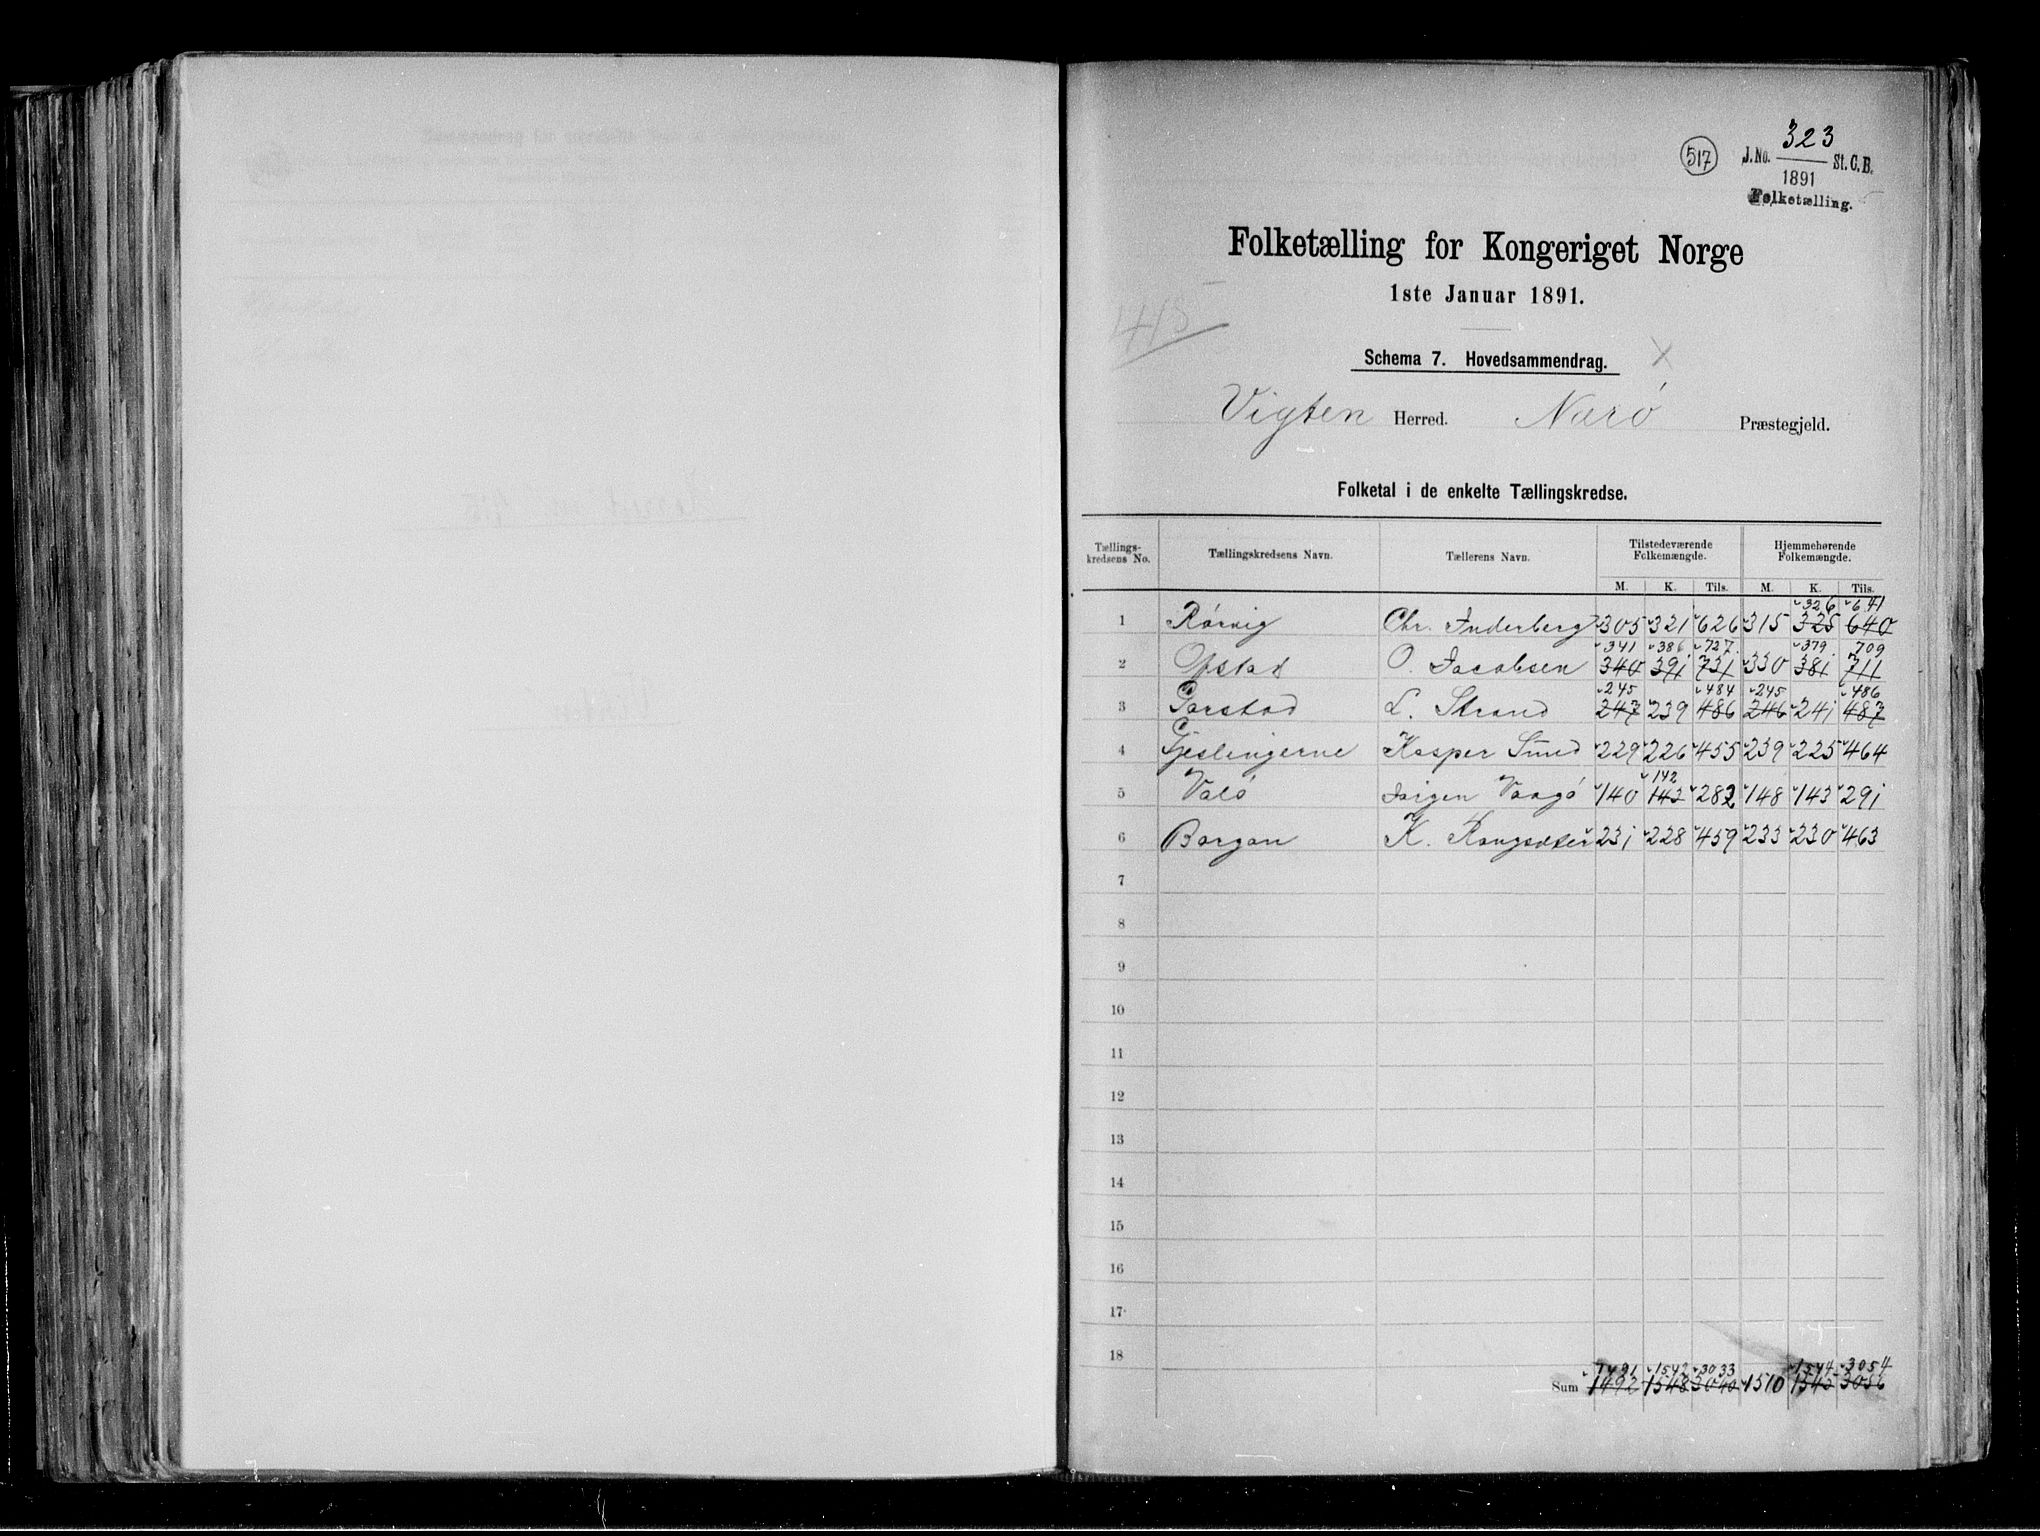 517
323
J. No. St. C. B.
1891
Folketælling.
Folketælling for Kongeriget Norge
1ste Januar 1891.
415
Schema 7. Hovedsammendrag. X
Vigten Herred. Nærö Præstegjeld.
Folketal i de enkelte Tællingskredse.
Tællings-kredsens No. Tællingskredsens Navn. Tællerens Navn. Tilstedeværende Folkemængde. Hjemmehørende Folkemængde.
M. K. Tils. M. K. Tils.
326 641
1 Rörvig Chr. Inderberg 305 321 626 315 325 640
341 386 727 379 709
2 Ofstad O. Jacobsen 340 391 731 330 381 711
245 484 245 486
3 Garstad L. Strand 247 239 486 246 241 487
4 Gjeslingerne Kasper Smed 229 226 455 239 225 464
142
5 Valö Jörgen Vaagö 140 143 282 148 143 291
6 Borgan K. 231 228 459 233 230 463
7
8
9
10
11
12
13
14
15
16
17
18
1491 1542 3033 1544 3054
Sum 1492 1548 3040 1510 1545 3056